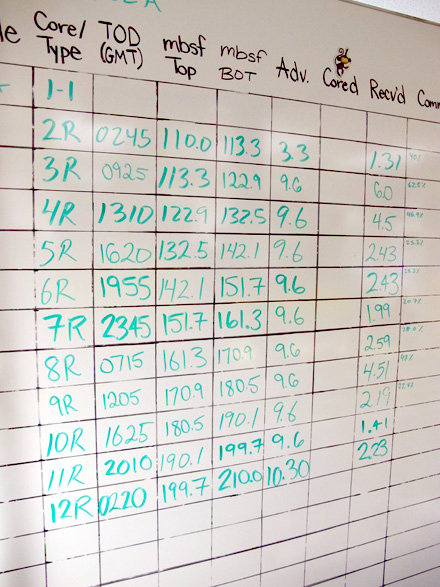 Core/ Type TOD (GMT) mbsf Top mbsf BOT Adv. Cored Recv'd
1-1
2R 0245 110.0 113.3 3.3 1.31 40%
3R 0925 113.3 122.9 9.6 6.0 62.5%
4R 1310 122.9 132.5 9.6 4.5 46.9%
5R 1620 132.5 142.1 9.6 2.43 25.3%
6R 1955 142.1 151.7 9.6 2.43 25.3%
7R 2345 151.7 161.3 9.6 1.99 20.7%
8R 0715 161.3 170.9 9.6 2.59
9R 1205 170.9 180.5 9.6 4.51 47%
10R 1625 180.5 190.1 9.6 2.19
11R 2010 190.1 199.7 9.6 1.41
12R 0220 199.7 210.0 10.30 2.23